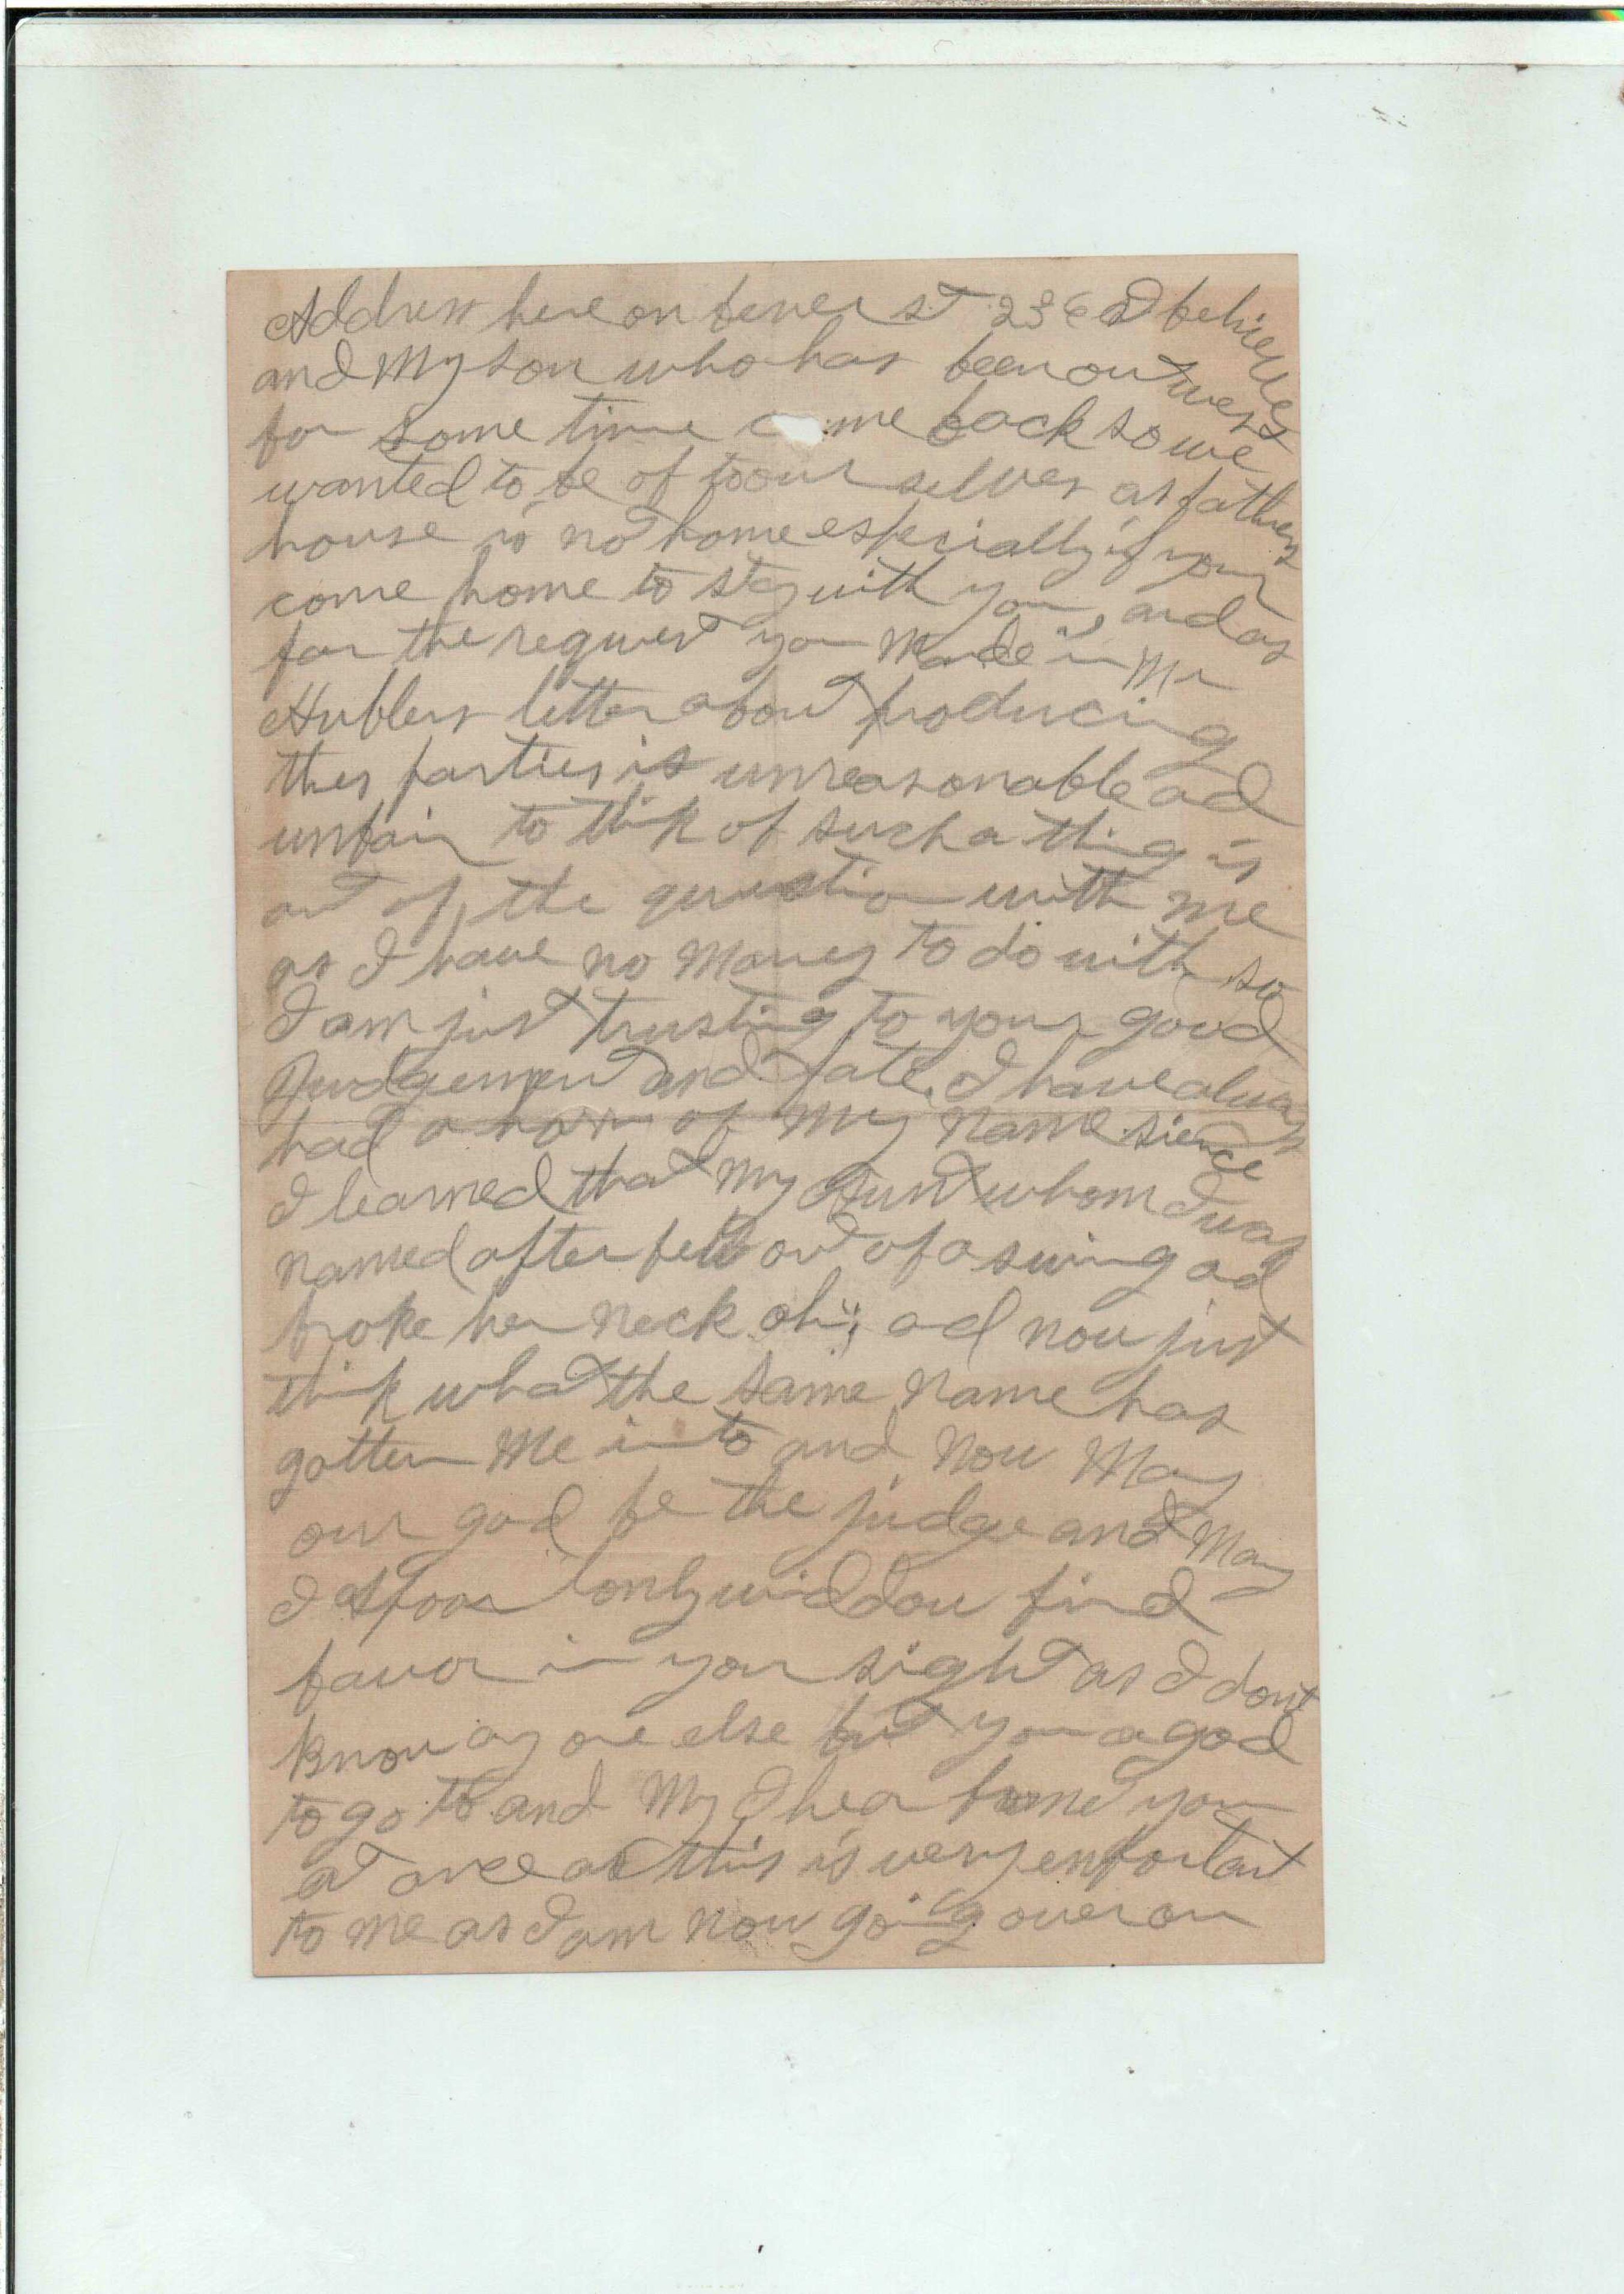 Address here on st 236 I believe
and My son who has been out west
for Some time c me back so we
wanted to be of to our selves as fathers
house is no home especially if your
come home to stay with you, and as
for the request you Made in Mr
Hublers letter about producing
thes parties is unreasonable ad
unfair to think of such a thing is
out of the question with me
as I have no Money to do with so
I am just trusting to your good
Judgement and fate. I have always
had a of My Name sience
I learned that My Aunt whom I was
Named after fell out of a swing ad
broke her Neck oh!! ad now just
think what the same Name has
gotten Me into and Now May
our god be the judge and May
I A poor lonly widdow find
favor in your sight as I dont
Know any one else but you a god
to go to and My I hear you
at once as this is very emportant
to Me as I am Now going over on